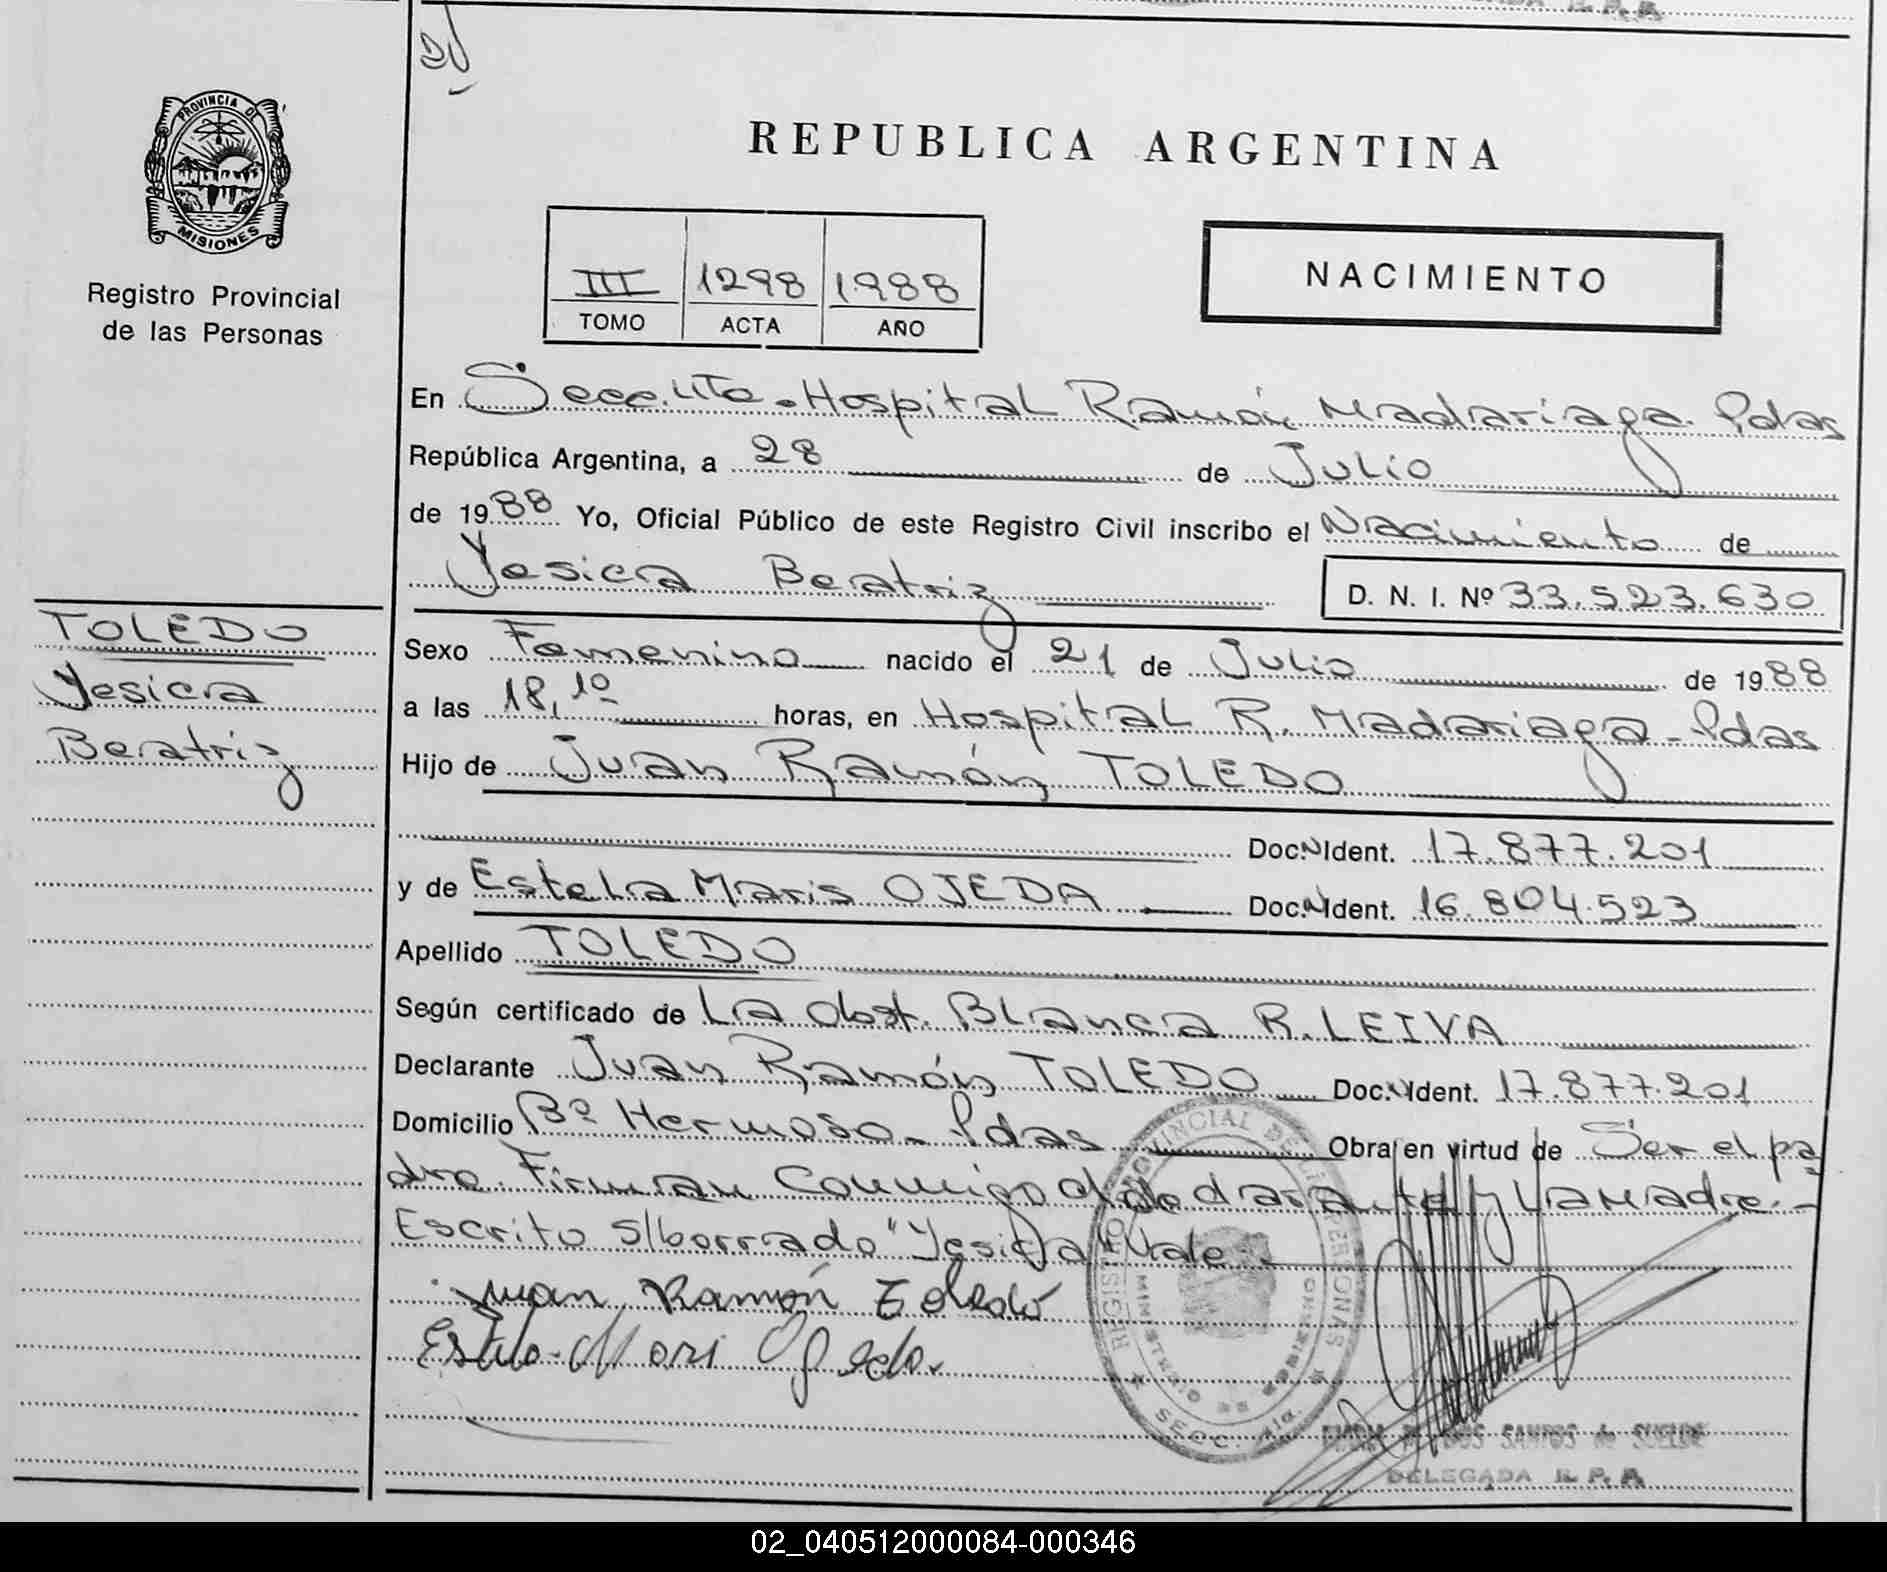 PROVINCIA DE
MISIONES
Registro Provincial
de las Personas
TOLEDO
Yesica
Beatriz
REPUBLICA ARGENTINA
III 1298 1988
TOMO ACTA AÑO
NACIMIENTO
En Secc. Hospital Ramón Madariaga. Pdas
República Argentina, a 28 de Julio
de 1988 Yo, Oficial Público de este Registro Civil inscribo el Nacimiento de
Yesica Beatriz D. N. I. Nº 33.523.630
Sexo Femenino nacido el 21 de Julio de 1988
a las 18,10 horas, en Hospital R. Madariaga - Pdas
Hijo de Juan Ramón TOLEDO
Doc. N Ident. 17.877.201
y de Estela Maris OJEDA Doc. N Ident. 16.804.523
Apellido TOLEDO
Según certificado de La Obst. Blanca R. LEIVA
Declarante Juan Ramón TOLEDO Doc. N Ident. 17.877.201
Domicilio Bº Hermoso - Pdas Obra en virtud de Ser el pa
dre. Firman Conmigo el declarante y la Madre.-
Escrito s/borrado "Yesica" Vale.
Juan Ramón Toledo
Estela Mari Ojeda.
REGISTRO PROVINCIAL DE LAS PERSONAS
MINISTERIO DE GOBIERNO
SECC. 4ta.
DOS SANTOS de
DELEGADA R. P. P.
02_040512000084-000346